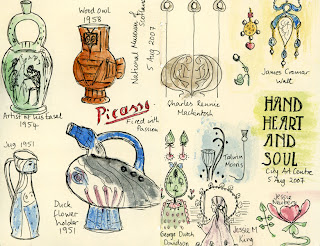 Wood Owl
1958
National Museum of
Scotland
5 Aug 2007
Artist at his easel
1954
Picasso
Fired with
Passion
Charles Rennie
Mackintosh
James Cromar
Watt
HAND
HEART
AND
SOUL
City Art Centre
5 Aug 2007
Jug 1951
Duck
flower
holder
1951
Talwin
Morris
George Dutch
Davidson
Jessie M
King
Jessie
Newbery